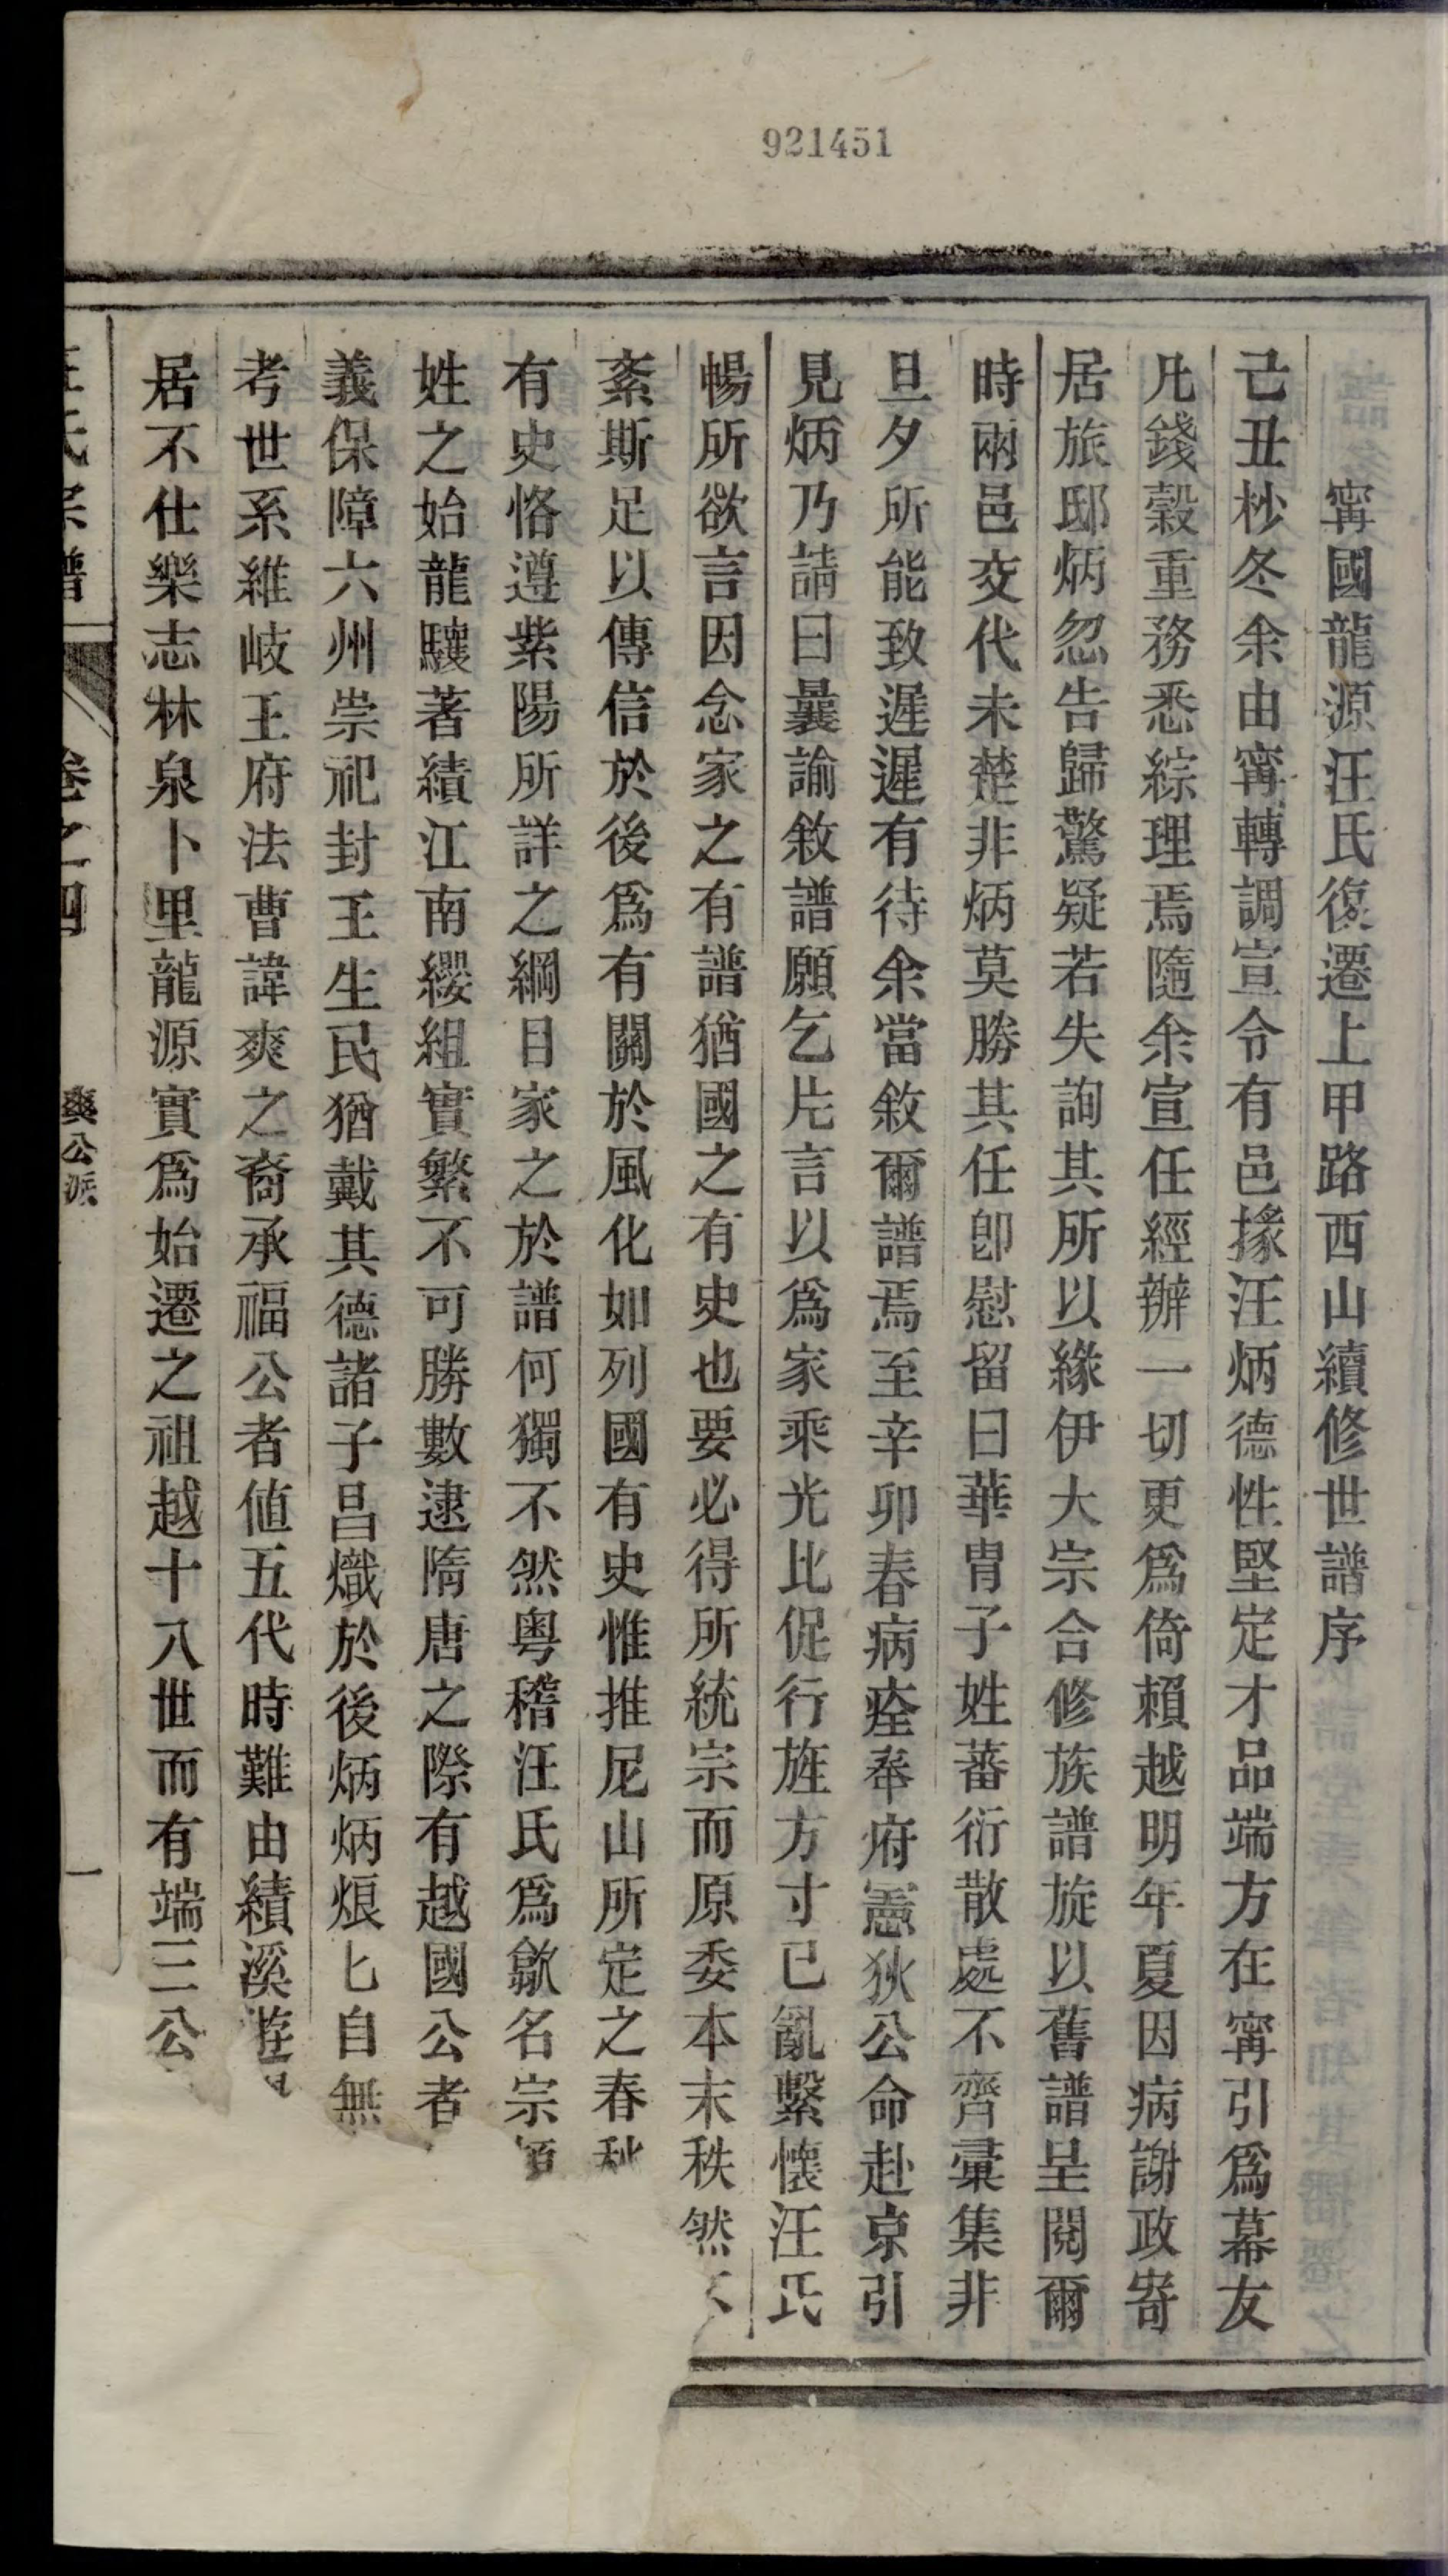 921451
甯國龍源汪氏復遷上甲路西山續修世譜序
己丑杪冬余由甯轉調宣令有邑掾汪炳德性堅定才品端方在甯引爲幕友
凡錢穀重務悉綜理焉隨余宣任經辦一切更爲倚賴越明年夏因病謝政寄
居旅邸炳忽告歸驚疑若失詢其所以緣伊大宗合修族譜旋以舊譜呈閱爾
時兩邑交代未楚非炳莫勝其任卽慰留曰華冑子姓蕃衍散處不齊彙集非
旦夕所能致遲遲有待余當敘爾譜焉至辛卯春病痊奉府憲狄公命赴京引
見炳乃請曰曩諭敘譜願乞片言以爲家乘光比促行旌方寸已亂繫懷汪氏
暢所欲言因念家之有譜猶國之有史也要必得所統宗而原委本末秩然不
紊斯足以傳信於後爲有關於風化如列國有史惟推尼山所定之春秋
有史恪遵紫陽所詳之綱目家之於譜何獨不然粵稽汪氏爲歙名宗
姓之始龍驤著績江南纓組實繁不可勝數逮隋唐之際有越國公者
義保障六州崇祀封王生民猶戴其德諸子昌熾於後炳炳烺匕自無
考世系維岐王府法曹諱爽之裔承福公者値五代時難由績溪遊
居不仕樂志林泉卜里龍源實爲始遷之祖越十八世而有端三公
汪氏宗譜 卷之四 爽公派 一